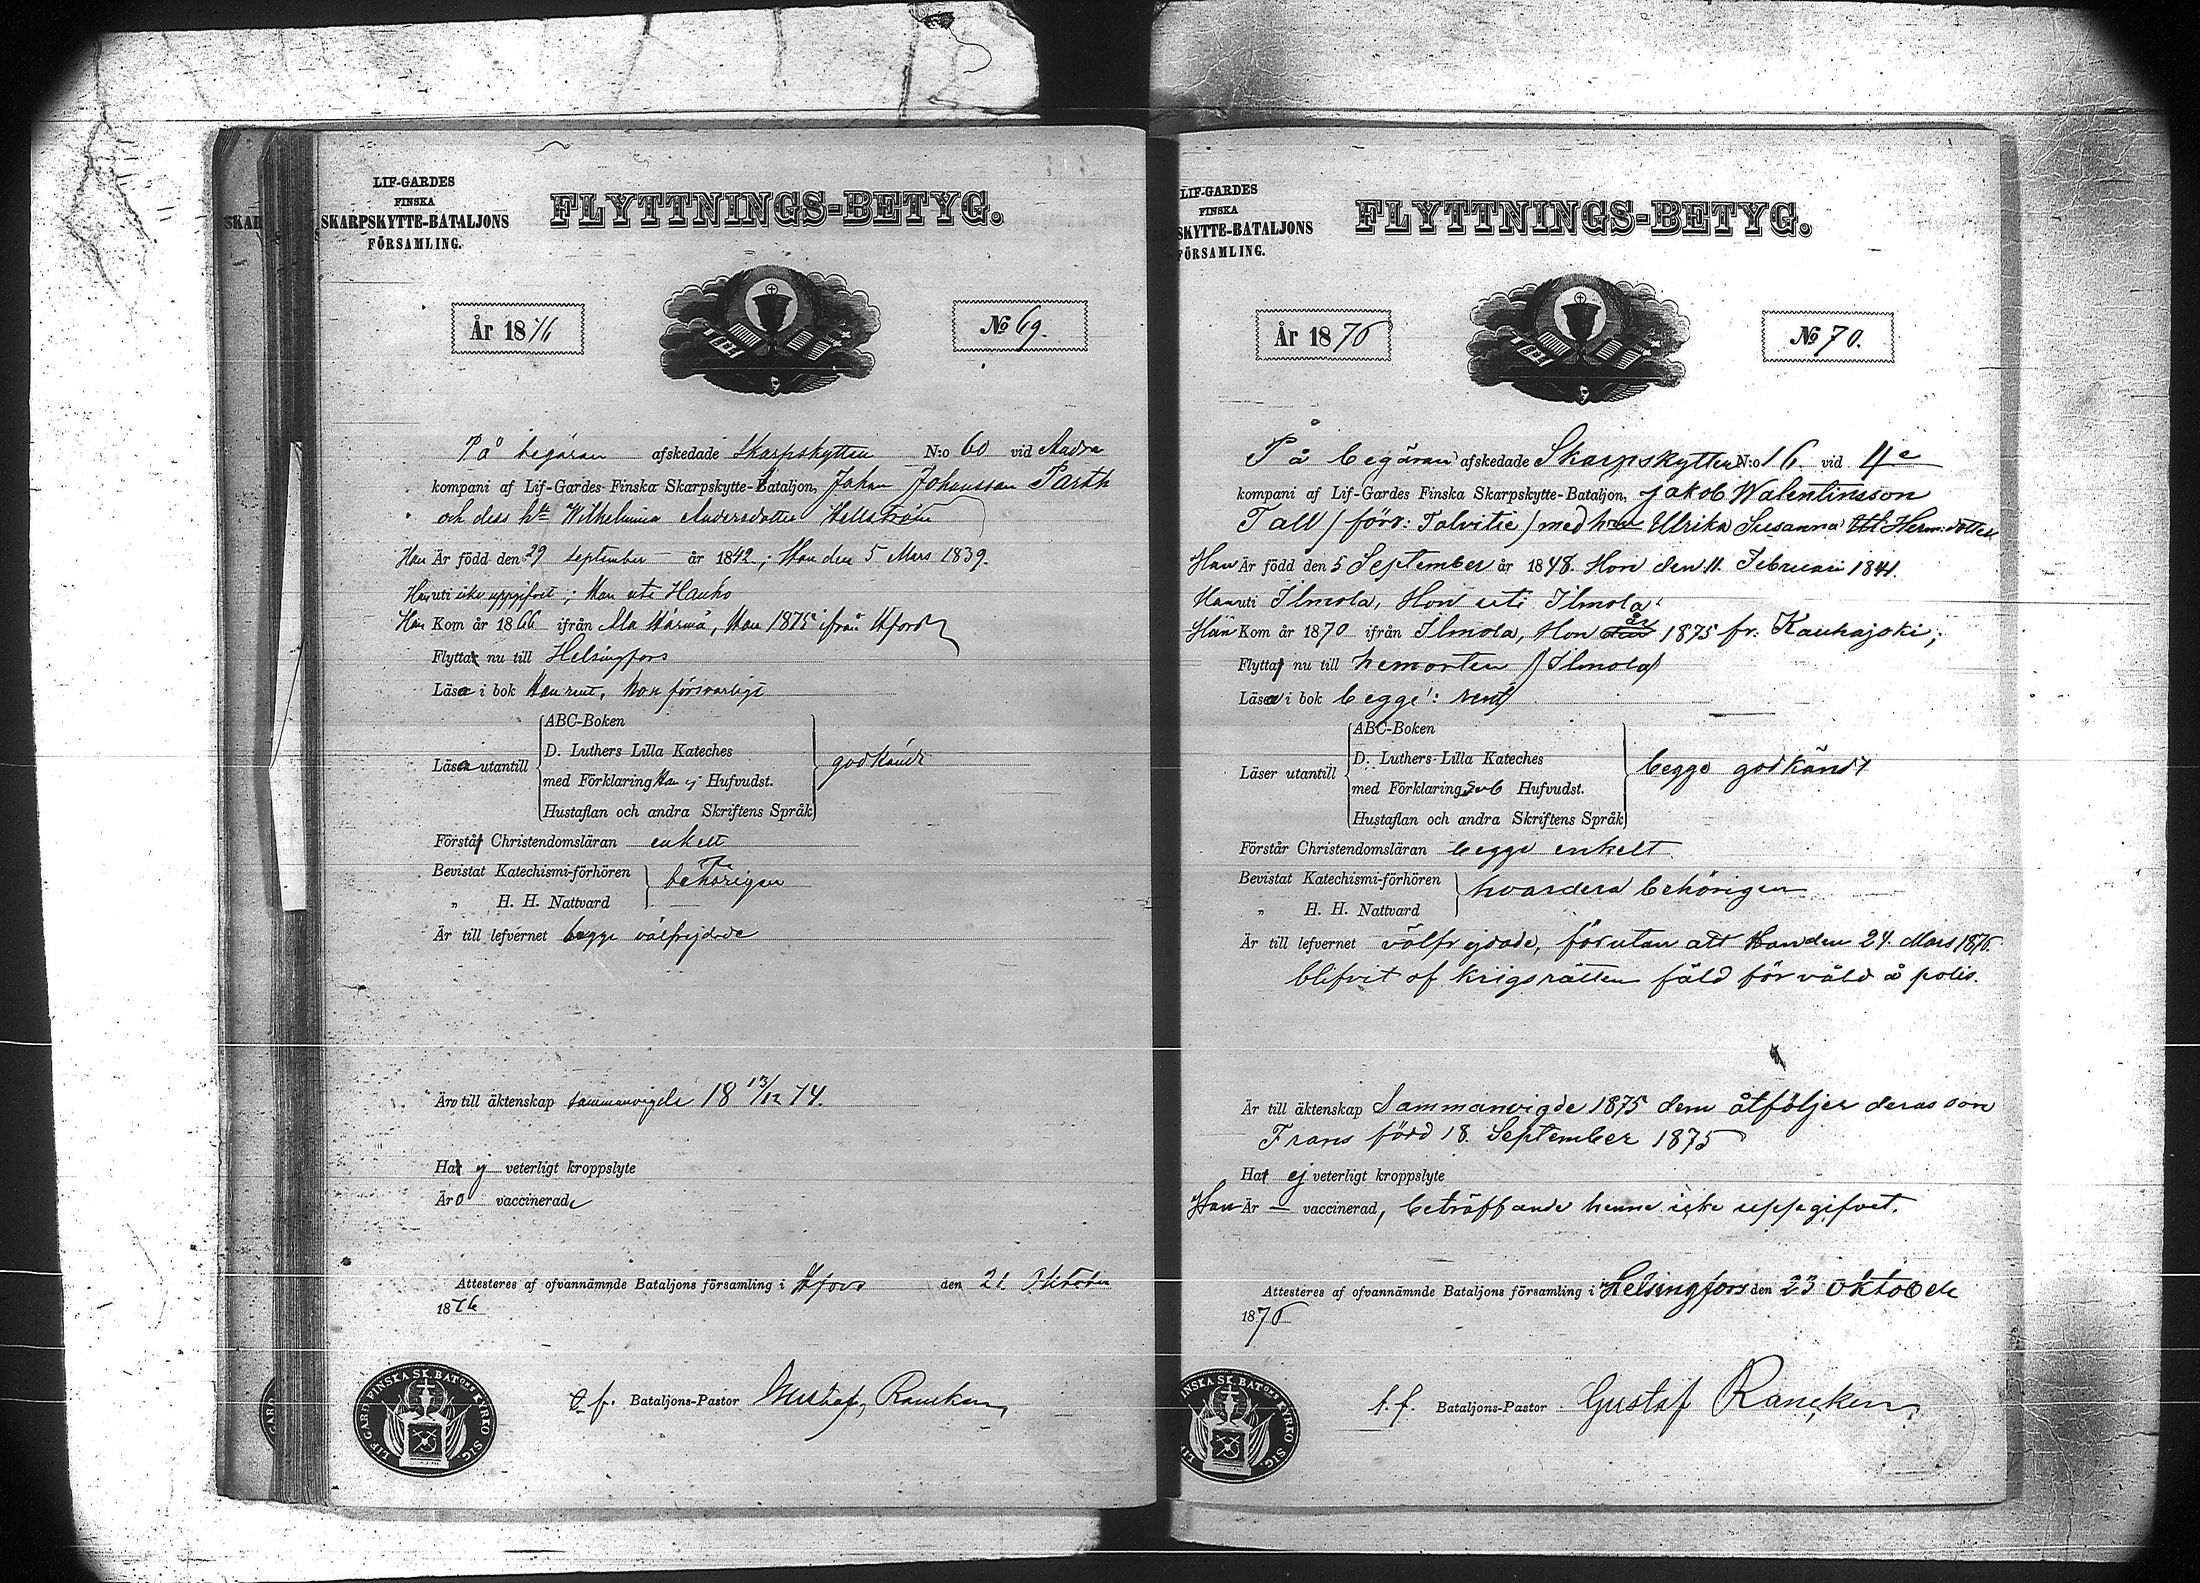 LIF-GARDES
FINSKA
SKARPSKYTTE-BATALJONS
FÖRSAMLING.
FLYTTNINGS-BETYG.
År 1876
No 69.
På begäran afskedade Skarpskytten N:o 60 vid Andra
kompani af Lif-Gardes Finska Skarpskytte-Bataljon, Johan Johansson Parth
och dess h:u Wilhelmina Andersdotter Hellström
Han Är född den 29 September år 1842; Hon den 5 Mars 1839.
Han uti icke uppgifvit; Hon uti Hauho
Han Kom år 1866 ifrån Ala Härmä, Hon 1875 ifrån Hfors
Flytta nu till Helsingfors
Läsa i bok Han rent, hon försvarligt
ABC-Boken
D. Luthers Lilla Kateches
Läsa utantill med Förklaring Han ej Hufvudst. godkändt
Hustaflan och andra Skriftens Språk
Förstå Christendomsläran enkelt
Bevistat Katechismi-förhören behörigen
„ H. H. Nattvard
Är till lefvernet begge välfrejdade
Äro till äktenskap sammanvigde 18 13/12 74.
Ha ej veterligt kroppslyte
Äro vaccinerade
Attesteres af ofvannämnde Bataljons församling i Hfors den 21 Oktober
1876
t. f. Bataljons-Pastor Gustaf Rancken
LIF.GARD.FINSKA SK.BATONS KYRKO SIG.
LIF-GARDES
FINSKA
SKYTTE-BATALJONS
FÖRSAMLING.
FLYTTNINGS-BETYG.
År 1876
No 70.
På begäran afskedade Skarpskytten N:o 16. vid 4e
kompani af Lif-Gardes Finska Skarpskytte-Bataljon, Jakob Walentinsson
Tall / förr: Talvitie / med hu Ulrika Susanna Herm:dotter
Han Är född den 5 September år 1848. Hon den 11. Februari 1841.
Han uti Ilmola, Hon uti Ilmola
Han Kom år 1870 ifrån Ilmola, Hon år 1875 fr. Kauhajoki;
Flytta nu till hemorten / Ilmola /
Läsa i bok begge: rent
ABC-Boken
D. Luthers Lilla Kateches
Läser utantill med Förklaring Hufvudst. begge godkändt
Hustaflan och andra Skriftens Språk
Förstår Christendomsläran begge enkelt
Bevistat Katechismi-förhören hvardera behörigen
„ H. H. Nattvard
Är till lefvernet välfrejdade, förutan att Han den 24. Mars 1876
blifvit af Krigsrätten fäld för våld å polis.
Är till äktenskap Sammanvigde 1875 dem åtföljer deras son
Frans född 18. September 1875
Ha ej veterligt kroppslyte
Han Är — vaccinerad, beträffande henne icke uppgifvet.
Attesteres af ofvannämnde Bataljons församling i Helsingfors den 23 Oktober
1876
t. f. Bataljons-Pastor Gustaf Rancken
FINSKA SK.BATONS KYRKO SIG.